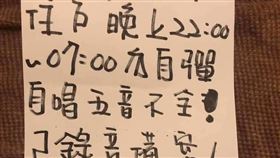 住戶晚上22:00
~07:00勿自彈
自唱五音不全!
已錄音